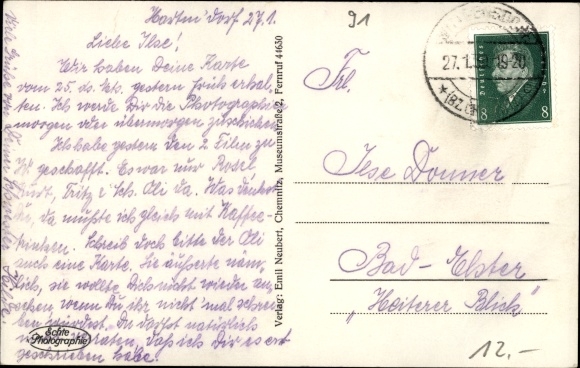 Hartm'dorf 27.1.
Liebe Ilse!
Wir haben Deine Karte
vom 25. ds. Mts. gestern früh erhal-
ten. Ich werde Dir die Photographie
morgen oder übermorgen zuschicken.
Ich habe gestern den 2. Film zu
geschafft. Es war nur Rosel,
Fritz &. Ich. Oli da. Was denkst
du, da mußte ich gleich mit Kaffee-
trinken. Schreib doch bitte der Oli
auch eine Karte, sie äußerte näm-
lich, sie wollte Dich nicht wieder an-
sehen wenn Du ihr nicht 'mal schrei-
ben würdest. Du darfst natürlich
nicht verraten, daß ich Dir es erst
geschrieben habe.
Echte
Photographie
Verlag: Emil Neubert, Chemnitz, Museumstraße 2, Fernruf 44630
91
27.1. 19-20
Deutsches Reich
8 8
Frl.
Ilse Donner
Bad-Elster
"Heiterer Blick"
12.-